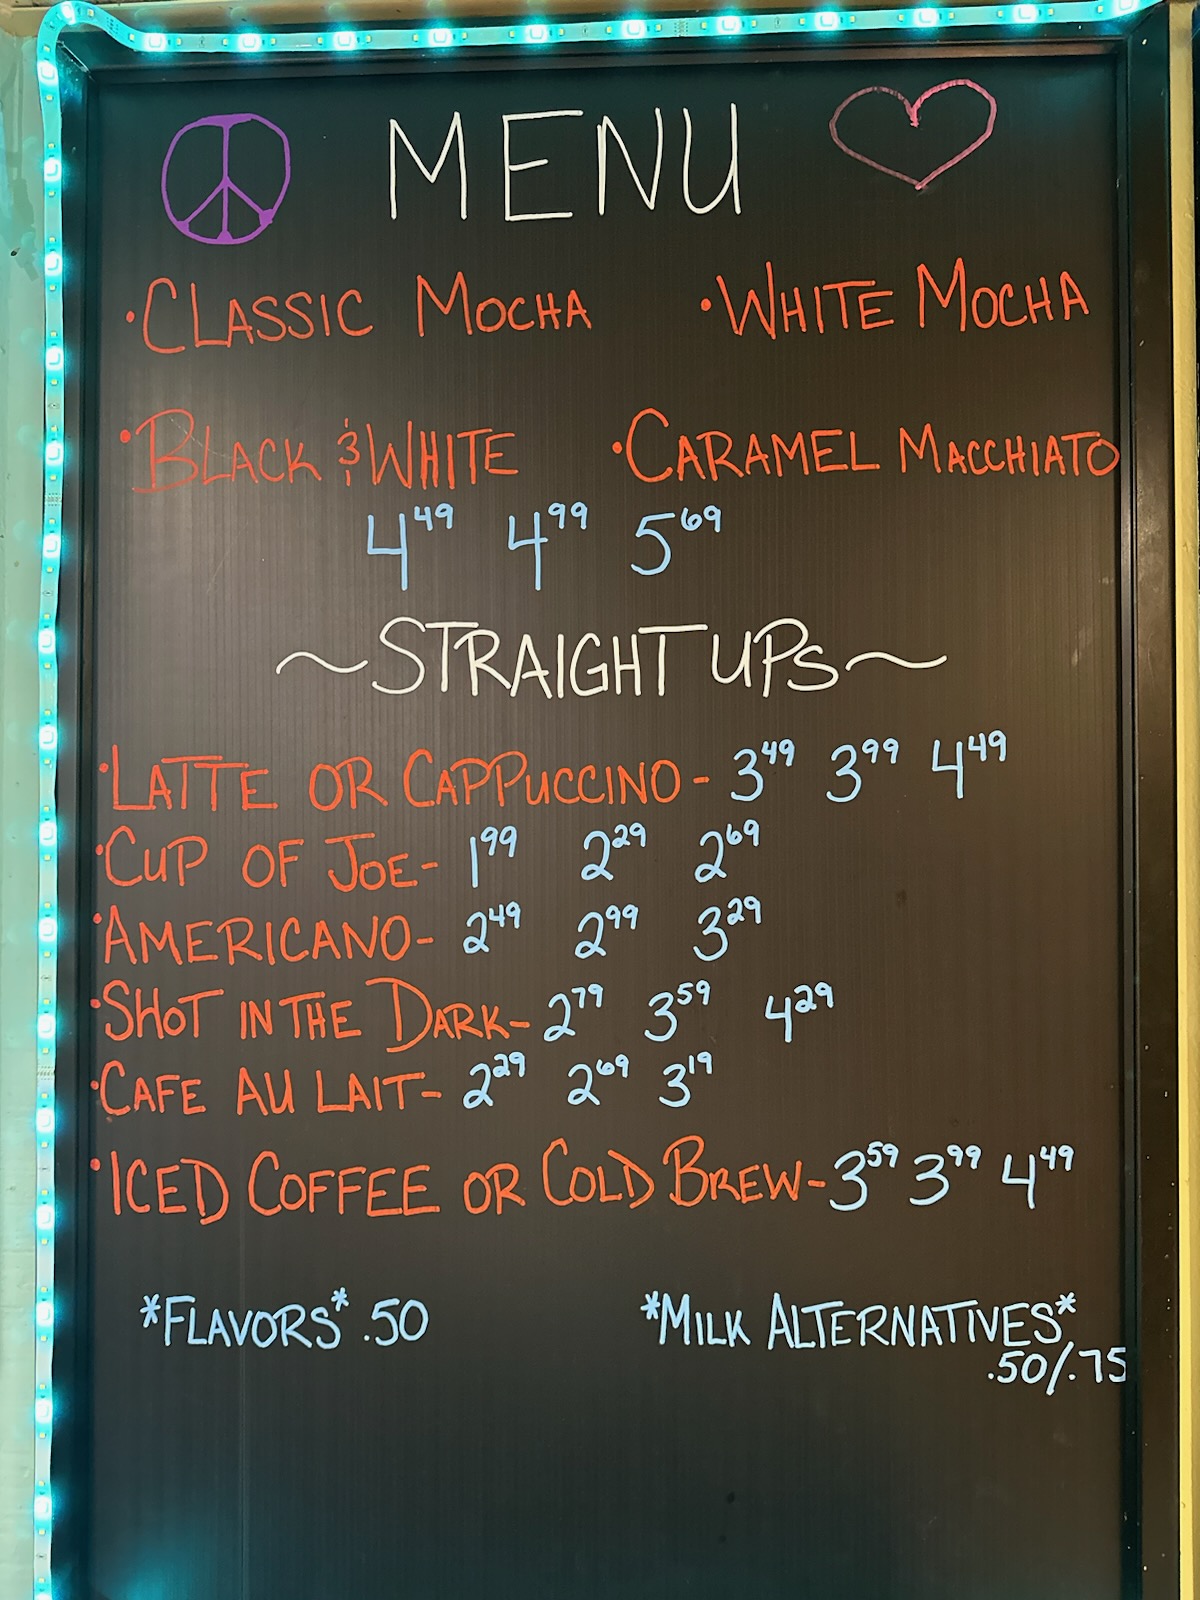 MENU
• CLASSIC MOCHA • WHITE MOCHA
• BLACK & WHITE • CARAMEL MACCHIATO
4 49 4 99 5 69
~STRAIGHT UPS~
• LATTE OR CAPPUCCINO - 3 49 3 99 4 49
• CUP OF JOE - 1 99 2 29 2 69
• AMERICANO - 2 49 2 99 3 29
• SHOT IN THE DARK - 2 79 3 59 4 29
• CAFE AU LAIT - 2 29 2 69 3 19
• ICED COFFEE OR COLD BREW - 3 59 3 99 4 49
*FLAVORS* .50 *MILK ALTERNATIVES*
.50/.75